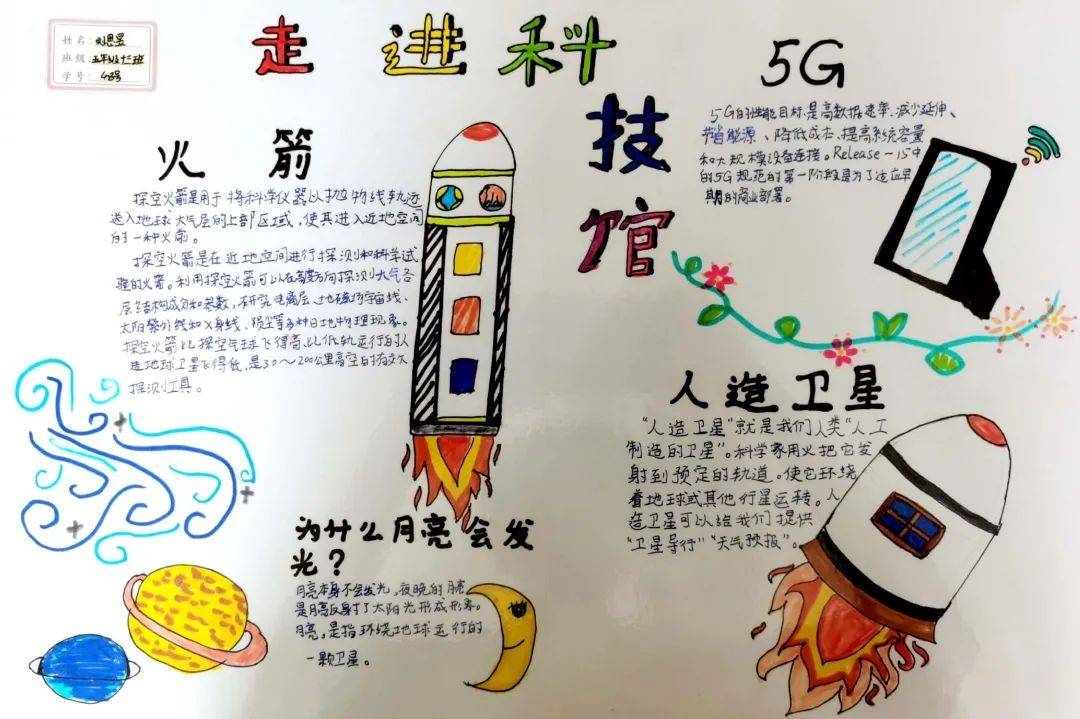 姓名：刘思昱
班级：五年级十三班
学号：48号
走进科
技
馆
火箭
探空火箭是用于将科学仪器以抛物线轨迹
送入地球大气层的上部区域，使其进入近地空间
的一种火箭。
探空火箭是在近地空间进行探测和科学试
验的火箭。利用探空火箭可以在高度方向探测大气各
层结构成分和参数，研究电离层、地磁场宇宙线、
太阳紫外线和X身线、陨尘等多种日地物理现象。
探空火箭比探空气球飞得高比低轨运行的人
造地球卫星飞得低，是30～200公里高空的有效
探测工具。
5G
5G的性能目标是高数据速率、减少延伸、
节省能源、降低成本、提高系统容量
和大规模设备连接。Release-15中
的5G规范的第一阶段是为了适应早
期的商业部署。
人造卫星
“人造卫星”就是我们人类“人工
制造的卫星”。科学家用火把它发
射到预定的轨道。使它环绕
着地球或其他行星运转。人
造卫星可以给我们提供
“卫星导行”“天气预报”。
为什么月亮会发
光？
月亮本身不会发光，夜晚的月亮
是月亮反射了太阳光形成形象。
月亮，是指环绕地球运行的
一颗卫星。